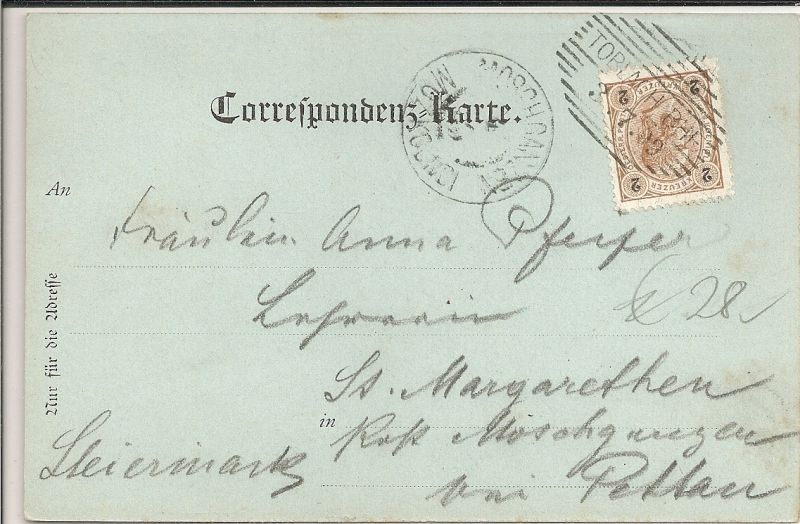 Correspondenz-Karte.
MOSCHGANZEN
TOBLACH BAHN
2 2
2 KREUZER 2
An
Fräulein Anna Pfeifer
Lehrerin
28
St. Margarethen
in Post Moschganzen
Steiermark
bei Pettau
Nur für die Adresse